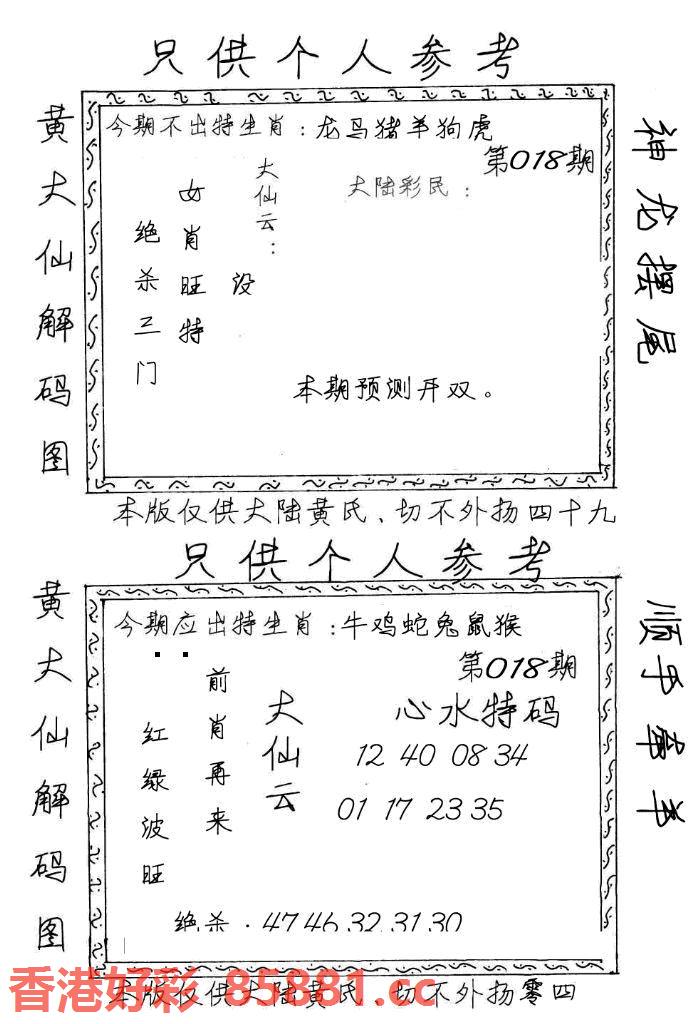 只供个人参考
黄大仙解码图
今期不出特生肖：龙马猪羊狗虎
第018期
大仙云：
大陆彩民：
女肖旺特
设
绝杀三门
本期预测开双。
神龙摆尾
本版仅供大陆黄氏、切不外扬四十九
只供个人参考
黄大仙解码图
今期应出特生肖：牛鸡蛇兔鼠猴
第018期
前肖再来
大仙云
红绿波旺
心水特码
12 40 08 34
01 17 23 35
绝杀：47.46.32.31.30
顺手牵羊
香港好彩 85881.cc
本版仅供大陆黄氏、切不外扬零四